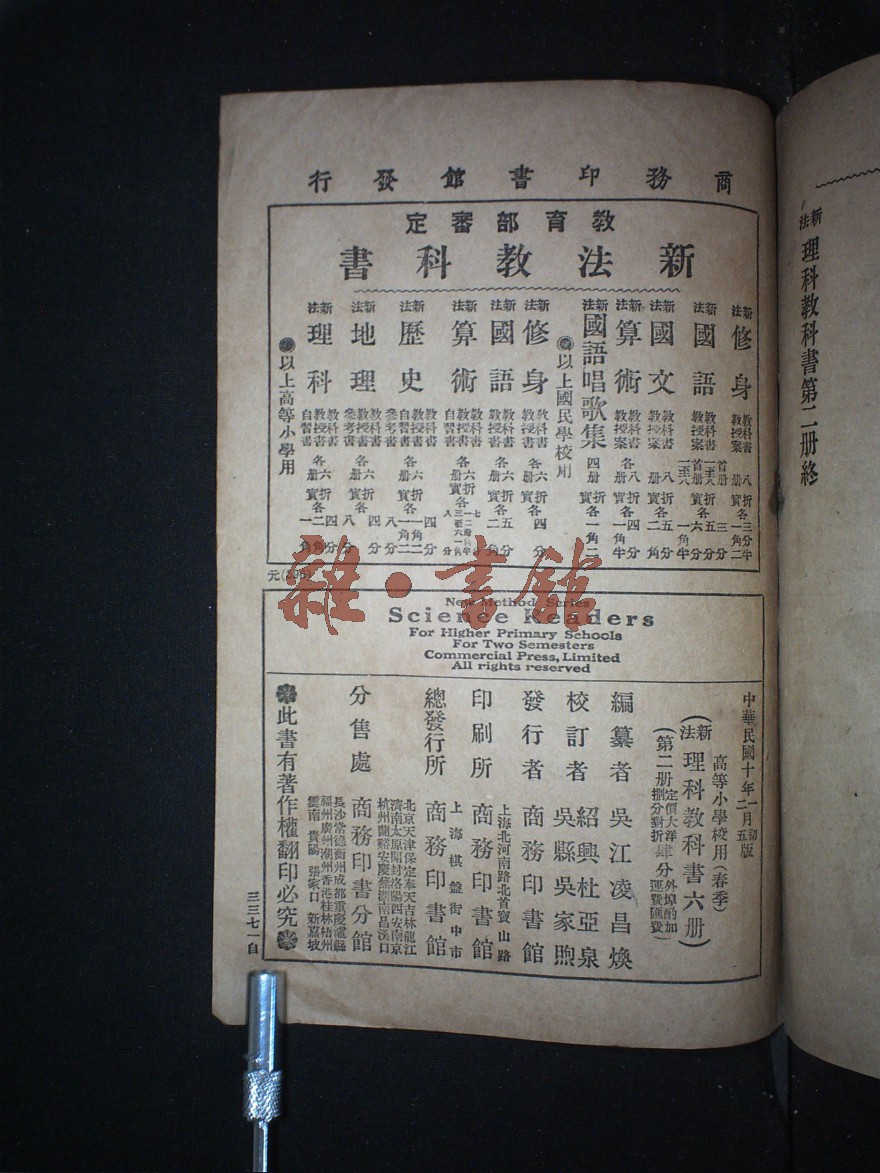 新法 理科教科書第二册終
商務印書館發行
教育部審定
新法教科書
新法 修身 教科書 八册
新法 國語 教科書 教授案
新法 國文 教科書 教授案 八册
新法 算術 教科書 教授案 各八册
新法 國語唱歌集 四册
以上國民學校用
新法 修身 教科書 各六册
新法 國語 教科書 教授書 各六册
新法 算術 教科書 教授書 自習書 各六册
新法 歷史 教科書 教授書 自習書 各六册
新法 地理 教科書 教授書 參考書 各六册
新法 理科 教科書 教授書 自習書 各六册
以上高等小學用
雜·書館
New Method Series
Science Readers
For Higher Primary Schools
For Two Semesters
Commercial Press, Limited
All rights reserved
中華民國十年一月初版
高等小學校用(春季)
(新法理科教科書六册)
(第二册定價大洋肆分
外埠酌加運費匯費)
編纂者 吳江凌昌煥
校訂者 紹興杜亞泉
吳縣吳家煦
發行者 商務印書館
上海北河南路北首寶山路
印刷所 商務印書館
上海棋盤街中市
總發行所 商務印書館
北京天津保定奉天吉林龍江
濟南太原開封洛陽西安南京
杭州蘭谿安慶蕪湖南昌漢口
分售處 商務印書分館
長沙常德衡州成都重慶瀘縣
福州廣州潮州香港桂林梧州
雲南 貴陽 張家口 新嘉坡
此書有著作權翻印必究
三三七一自